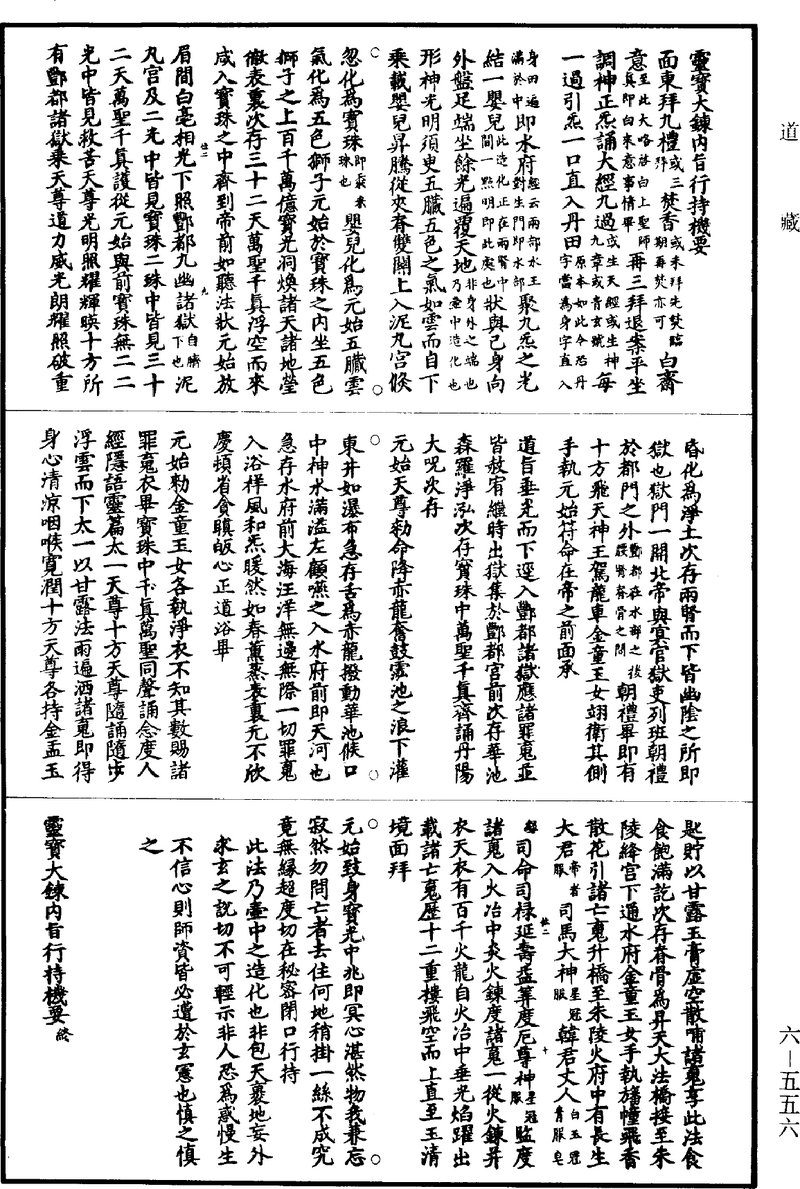 道藏
靈寶大鍊內旨行持機要
面東拜九禮或三拜焚香或未拜先焚臨期再焚亦可白齋
意至此大略啓白上聖師真即白來意事情畢再三拜退案平坐
調神正炁誦大經九過或生天經或生神九章或青玄號每
一過引炁一口直入丹田原本如此今恐丹字當為身字直入
身田遍滿於中即水府經云兩部水王對生門即水部聚九炁之光
結一嬰兒此造化正在兩腎中間一點明即此處也狀與己身向
外盤足端坐餘光遍覆天地非身外之端也乃壺中造化也
形神光明須臾五臟五色之氣如雲而自下
乘載嬰兒昇騰從夾脊雙關上入泥丸宮倐
忽化為寶珠即黍米珠也嬰兒化為元始五臟雲
氣化為五色獅子元始於寶珠之內坐五色
獅子之上百千萬億寶光洞煥諸天諸地瑩
徹表裏次存三十二天萬聖千真浮空而來
咸入寶珠之中齊到帝前如聽法狀元始放
眉間白毫相光下照酆都九幽諸獄自臍下也泥
丸宮及二光中皆見寶珠二珠中皆見三十
二天萬聖千真護從元始與前寶珠無二二
光中皆見救苦天尊光明照耀輝暎十方所
有酆都諸獄乘天尊道力威光朗耀照破重
昏化為淨土次存兩腎而下皆幽陰之所即
獄也獄門一開北帝與冥官獄吏列班朝禮
於都門之外酆都在水部之後䐴腎脊骨之間朝禮畢即有
十方飛天神王駕龍車金童玉女翊衛其側
手執元始符命在帝之前面承
道旨垂光而下逕入酆都諸獄應諸罪䰟並
皆赦宥繼時出獄集於酆都宮前次存華池
森羅淨泓次存寶珠中萬聖千真齊誦丹陽
大呪次存
元始天尊勑命降赤龍奮鼓雲池之浪下灌
東井如瀑布急存舌為赤龍撥動華池候口
中神水滿溢左顧嚥之入水府前即天河也
急存水府前大海汪洋無邊無際一切罪䰟
入浴祥風和炁暖然如春薰蒸表裏无不欣
慶頓省貪瞋皈心正道浴畢
元始勑金童玉女各執淨衣不知其數賜諸
罪䰟衣畢寶珠中千真萬聖同聲誦念度人
經隱語靈篇太一天尊十方天尊隨誦隨步
浮雲而下太一以甘露法雨遍洒諸䰟即得
身心清涼咽喉寬潤十方天尊各持金盂玉
匙貯以甘露玉膏虛空散哺諸䰟享此法食
食飽滿訖次存脊骨為昇天大法橋接至朱
陵絳宮下通水府金童玉女手執旛幢飛香
散花引諸亡䰟升橋至朱陵火府中有長生
大君帝者服司馬大神星冠服韓君丈人白玉冠青服皂
司命司祿延壽益筭度厄尊神星冠服監度
諸䰟入火冶中炎火鍊度諸䰟一從火鍊昇
衣天衣有百千火龍自火冶中垂光焰躍出
載諸亡䰟歷十二重樓飛空而上直至玉清
境面拜
元始致身寶光中兆即冥心湛然物我兼忘
寂然勿問亡者去住何地稍掛一絲不成究
竟無緣超度切在秘密閉口行持
此法乃壺中之造化也非包天裹地妄外
求玄之說切不可輕示非人恐為惑慢生
不信心則師資皆必遭於玄憲也慎之慎
之
靈寶大鍊內旨行持機要終
六－五五六